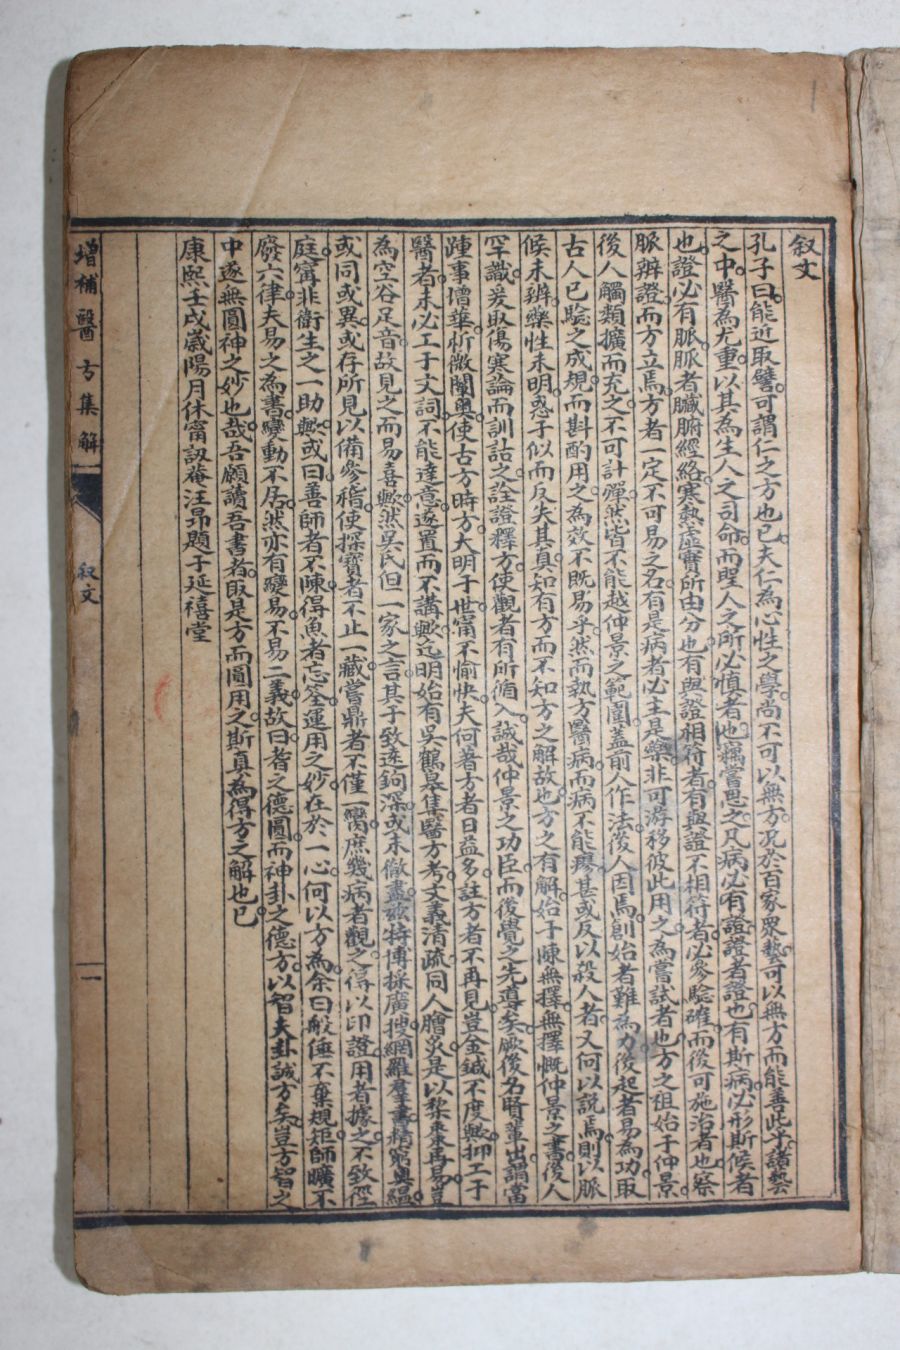 叙文
孔子曰能近取譬可謂仁之方也已夫仁為心性之學尚不可以無方况於百家衆藝可以無方而能善此乎諸藝
之中醫為尤重以其為生人之司命而聖人之所必慎者也竊嘗思之凡病必有證證者證也有斯病必形斯候者
也證必有脈脈者臟腑經絡寒熱虛實所由分也有與證相符者有與證不相符者必參驗確而後可施治者也察
脈辨證而方立焉方者一定不可易之名有是病者必主是藥非可游移彼此用之為嘗試者也方之祖始于仲景
後人觸類擴而充之不可計殫然皆不能越仲景之範圍蓋前人作法後人因焉創始者難為力後起者易為功取
古人已驗之成規而斟酌用之為效不既易乎然而執方醫病而病不能瘳甚或反以殺人者又何以說焉則以脈
候未辨藥性未明惑于似而反失其真知有方而不知方之解故也方之有解始于陳無擇無擇慨仲景之書後人
罕識爰取傷寒論而訓詁之詮證釋方使觀者有所循入誠哉仲景之功臣而後覺之先導矣厥後名賢輩出謂當
踵事增華析微闡奧使古方時方大明于世甯不愉快夫何著方者日益多註方者不再見豈金鍼不度歟抑工于
醫者未必工于文詞不能達意遂置而不講歟迄明始有吳鶴皋集醫方考文義清疏同人膾炙是以梨棗再易豈
為空谷足音故見之而易喜歟然吳氏但一家之言其于致遠鉤深或未徹盡茲特博採廣搜網羅羣書精窮奧蘊
或同或異或存所見以備參稽使探寶者不止一藏嘗鼎者不僅一臠庶幾病者觀之得以印證用者據之不致徑
庭甯非衞生之一助歟或曰善師者不陳得魚者忘筌運用之妙在於一心何以方為余曰般倕不棄規矩師曠不
廢六律夫易之為書變動不居然亦有變易不易二義故曰蓍之德圓而神卦之德方以智夫卦誠方矣豈方智之
中遂無圓神之妙也哉吾願讀吾書者取是方而圓用之斯真為得方之解也已
康熙壬戌歲陽月休甯訒菴汪昂題于延禧堂
增補醫方集解
叙文
一